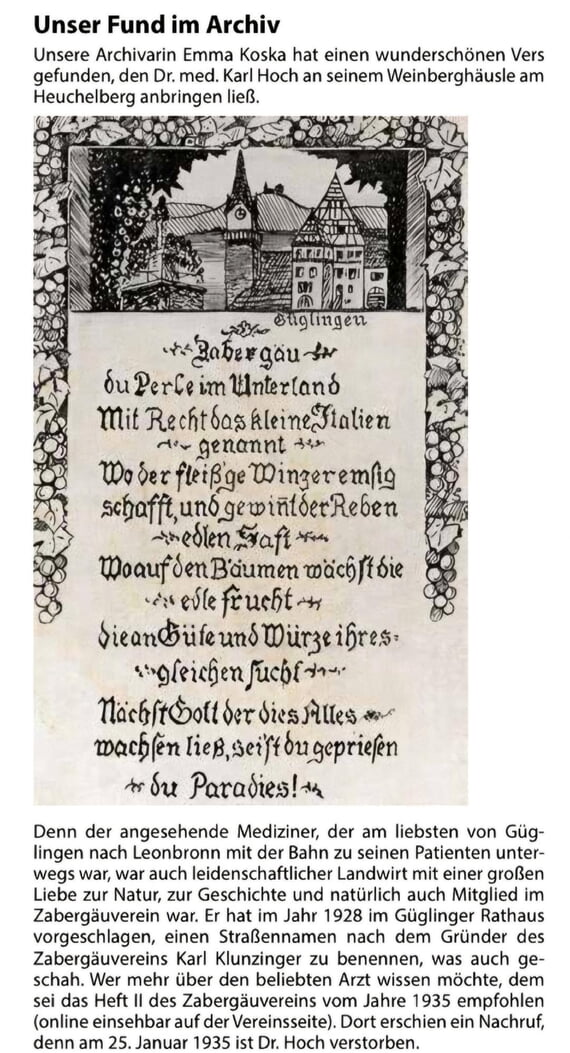 Unser Fund im Archiv
Unsere Archivarin Emma Koska hat einen wunderschönen Vers
gefunden, den Dr. med. Karl Hoch an seinem Weinberghäusle am
Heuchelberg anbringen ließ.
Güglingen
Zabergäu
du Perle im Unterland
Mit Recht das kleine Italien
genannt
Wo der fleiß'ge Winzer emsig
schafft, und gewiñt der Reben
edlen Saft
Wo auf den Bäumen wächst die
edle frucht
die an Güte und Würze ihres=
gleichen sucht
Nächst Gott der dies Alles
wachsen ließ, sei'st du gepriesen
du Paradies!
Denn der angesehende Mediziner, der am liebsten von Güg-
lingen nach Leonbronn mit der Bahn zu seinen Patienten unter-
wegs war, war auch leidenschaftlicher Landwirt mit einer großen
Liebe zur Natur, zur Geschichte und natürlich auch Mitglied im
Zabergäuverein war. Er hat im Jahr 1928 im Güglinger Rathaus
vorgeschlagen, einen Straßennamen nach dem Gründer des
Zabergäuvereins Karl Klunzinger zu benennen, was auch ge-
schah. Wer mehr über den beliebten Arzt wissen möchte, dem
sei das Heft II des Zabergäuvereins vom Jahre 1935 empfohlen
(online einsehbar auf der Vereinsseite). Dort erschien ein Nachruf,
denn am 25. Januar 1935 ist Dr. Hoch verstorben.